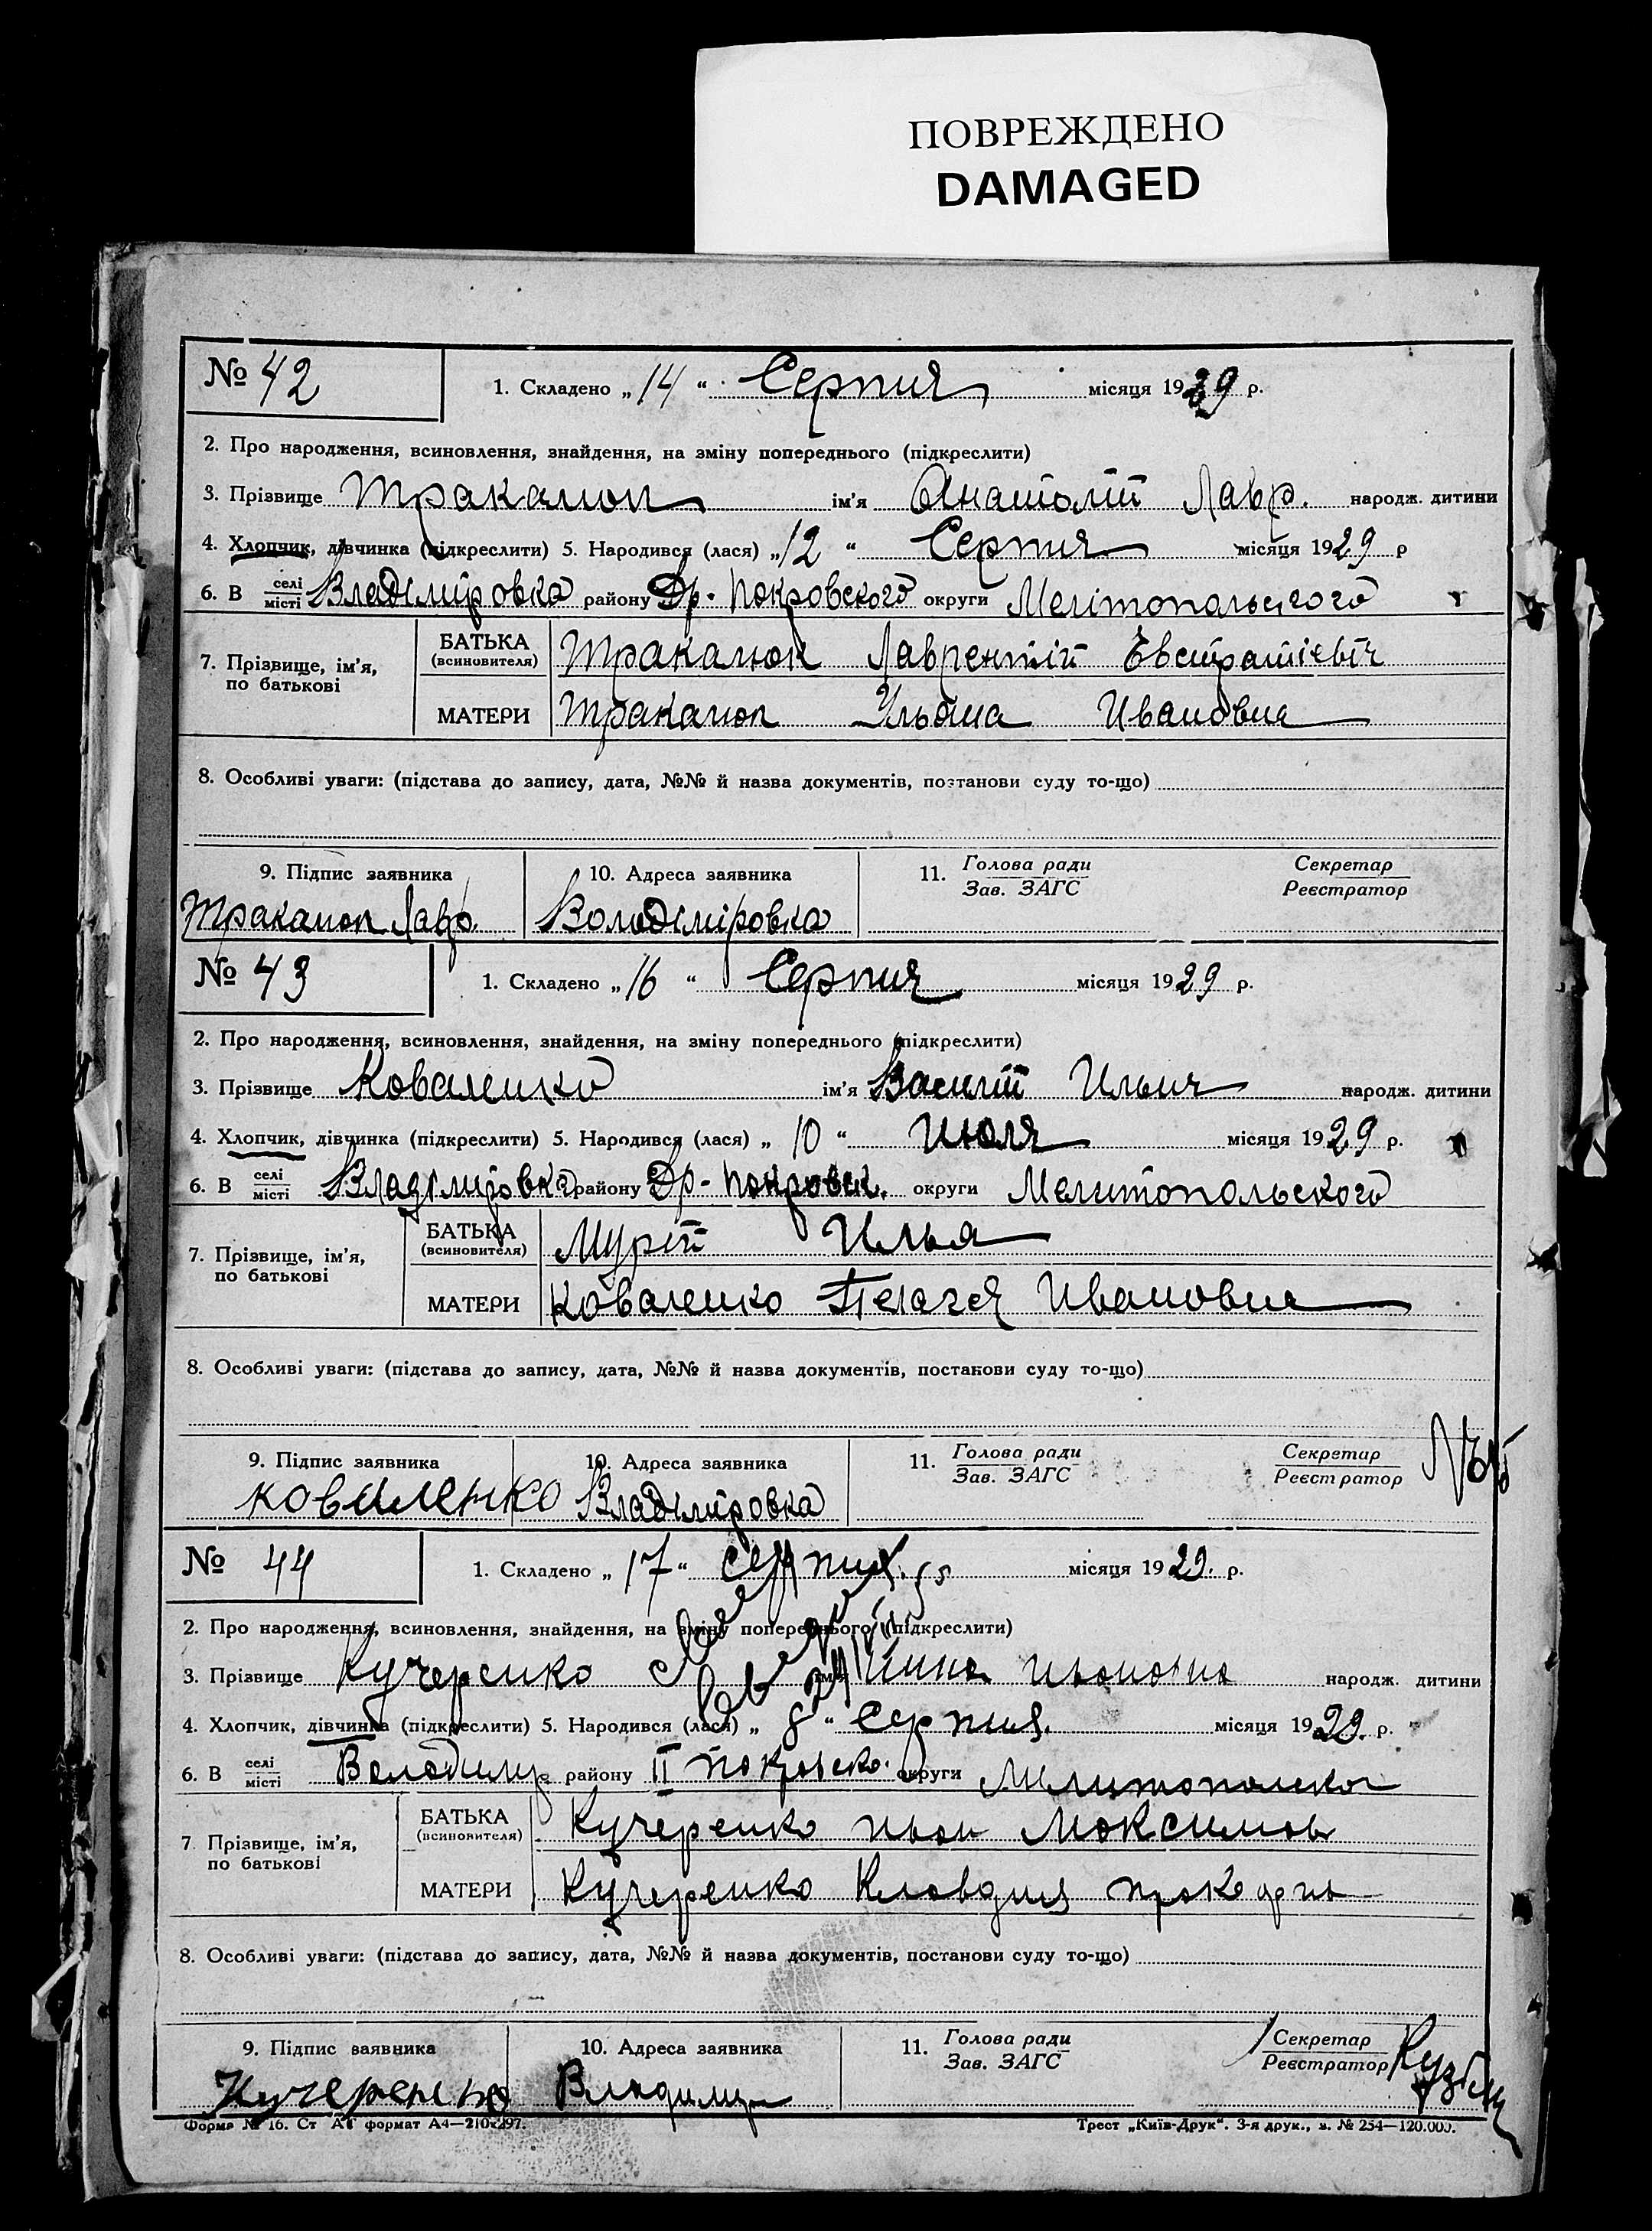 ПОВРЕЖДЕНО
DAMAGED
№ 42 1. Складено „ 14 “ Серпня місяця 1929 р.
2. Про народження, всиновлення, знайдення, на зміну попереднього (підкреслити)
3. Прізвище Тракалюк ім’я Анатолій Лавр. народж. дитини
4. Хлопчик, дівчинка (підкреслити) 5. Народився (лася) „ 12 “ Серпня місяця 1929 р
6. В селі місті Владіміровка району Др. Покровского округи Мелітопольского
7. Прізвище, ім’я, по батькові
БАТЬКА (всиновителя) Тракалюк Лаврентій Евстратіевіч
МАТЕРИ Тракалюк Ульяна Ивановна
8. Особливі уваги: (підстава до запису, дата, №№ й назва документів, постанови суду то-що)
9. Підпис заявника 10. Адреса заявника 11. Голова ради Зав. ЗАГС Секретар Реєстратор
Тракалюк Лавр. Володіміровка
№ 43 1. Складено „ 16 “ Серпня місяця 1929 р.
2. Про народження, всиновлення, знайдення, на зміну попереднього (підкреслити)
3. Прізвище Коваленко ім’я Василій Ильич народж. дитини
4. Хлопчик, дівчинка (підкреслити) 5. Народився (лася) „ 10 “ Июля місяця 1929 р.
6. В селі місті Владіміровка району Др- Покровск. округи Мелитопольского
7. Прізвище, ім’я, по батькові
БАТЬКА (всиновителя) Мурій Илья
МАТЕРИ Коваленко Пелагея Ивановна
8. Особливі уваги: (підстава до запису, дата, №№ й назва документів, постанови суду то-що)
9. Підпис заявника 10. Адреса заявника 11. Голова ради Зав. ЗАГС Секретар Реєстратор
Коваленко Владіміровка
№ 44 1. Складено „ 17 “ серпня. місяця 1929. р.
2. Про народження, всиновлення, знайдення, на зміну попереднього (підкреслити)
3. Прізвище Кучеренко ім’я народж. дитини
4. Хлопчик, дівчинка (підкреслити) 5. Народився (лася) „ 8 “ Серпня. місяця 1929. р.
6. В селі місті Володимир району II Покровско. округи Мелитополско
7. Прізвище, ім’я, по батькові
БАТЬКА (всиновителя) Кучеренко иван Максимов
МАТЕРИ Кучеренко Клавдия
8. Особливі уваги: (підстава до запису, дата, №№ й назва документів, постанови суду то-що)
9. Підпис заявника 10. Адреса заявника 11. Голова ради Зав. ЗАГС Секретар Реєстратор
Кучеренко Владимир
Форма № 16. Ст АТ формат А4—210х297. Трест „Київ-Друк“. 3-я друк., з. № 254—120.000.